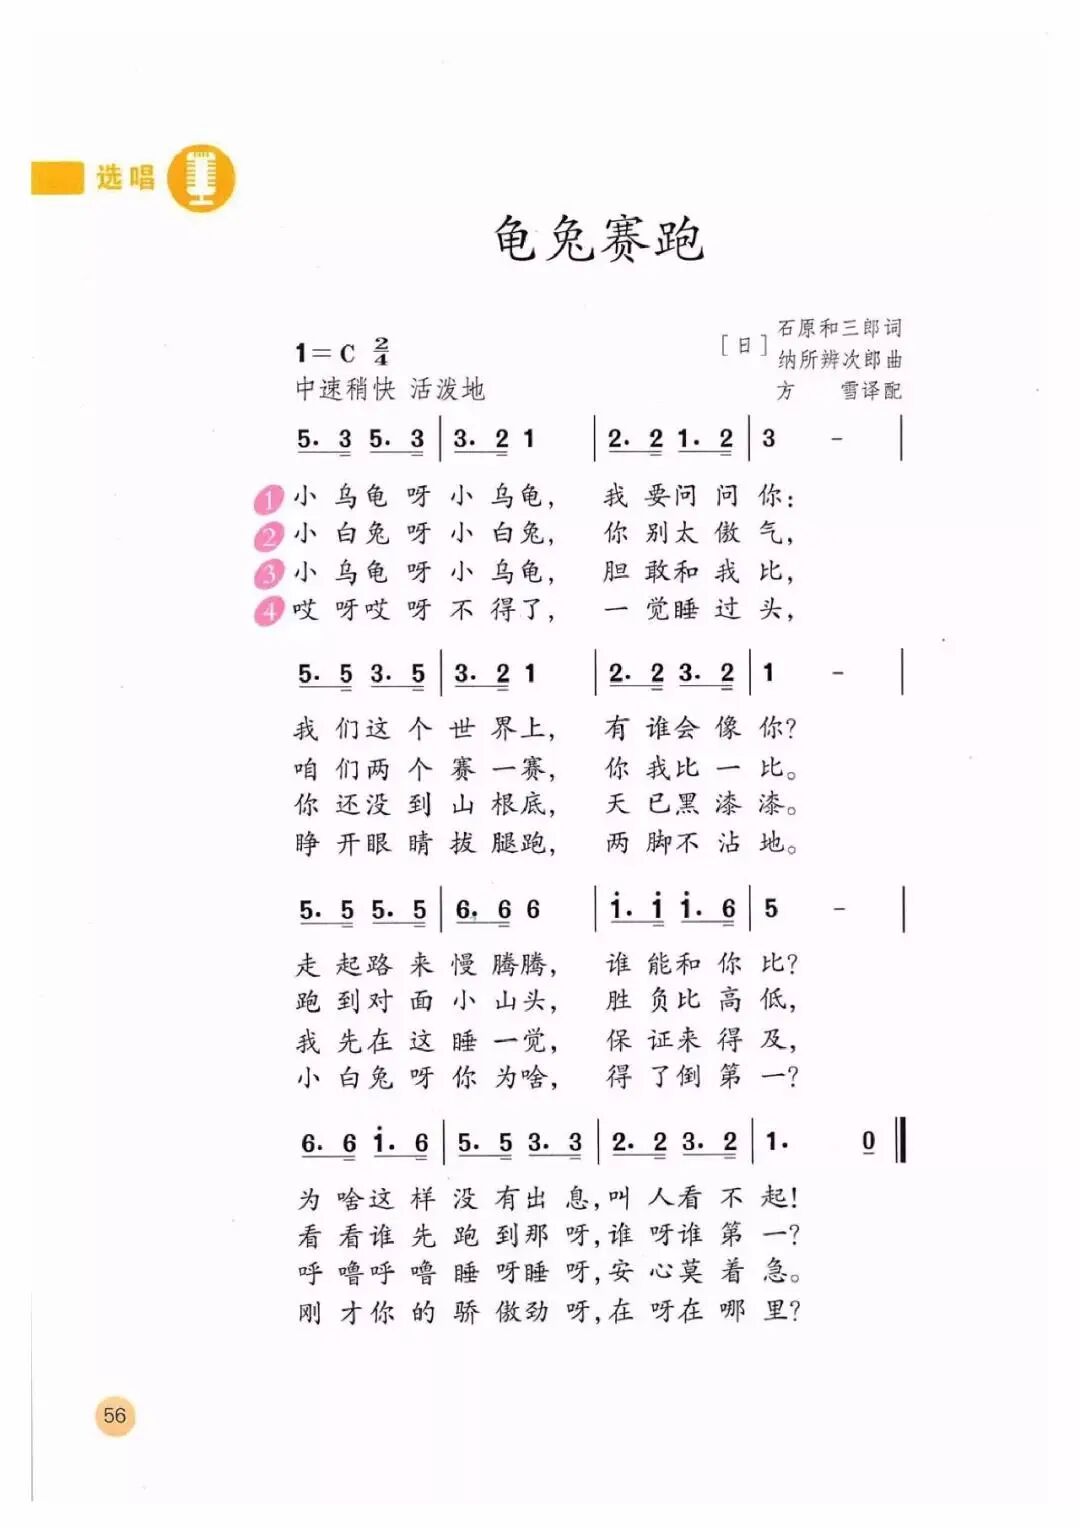 选唱
龟兔赛跑
1=C 2/4
[日]
石原和三郎词
纳所辨次郎曲
方 雪译配
中速稍快 活泼地
5. 3 5. 3 | 3. 2 1 | 2. 2 1. 2 | 3 - |
1 小乌龟呀小乌龟, 我要问问你:
2 小白兔呀小白兔, 你别太傲气,
3 小乌龟呀小乌龟, 胆敢和我比,
4 哎呀哎呀不得了, 一觉睡过头,
5. 5 3. 5 | 3. 2 1 | 2. 2 3. 2 | 1 - |
我们这个世界上, 有谁会像你?
咱们两个赛一赛, 你我比一比。
你还没到山根底, 天已黑漆漆。
睁开眼睛拔腿跑, 两脚不沾地。
5. 5 5. 5 | 6. 6 6 | i. i i. 6 | 5 - |
走起路来慢腾腾, 谁能和你比?
跑到对面小山头, 胜负比高低,
我先在这睡一觉, 保证来得及,
小白兔呀你为啥, 得了倒第一?
6. 6 i. 6 | 5. 5 3. 3 | 2. 2 3. 2 | 1. 0 ‖
为啥这样没有出息,叫人看不起!
看看谁先跑到那呀,谁呀谁第一?
呼噜呼噜睡呀睡呀,安心莫着急。
刚才你的骄傲劲呀,在呀在哪里?
56